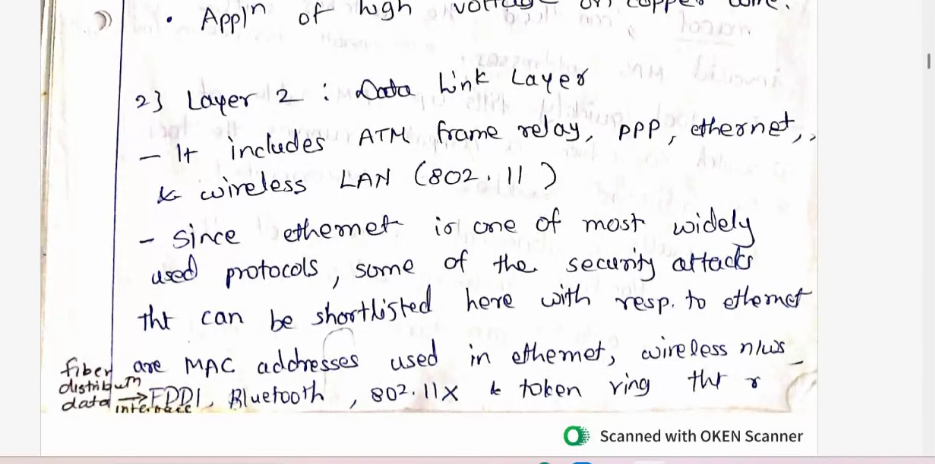 • Appln of high voltage on copper wire.
2} Layer 2 : Data Link Layer
- It includes ATM frame relay, PPP, ethernet,,
& wireless LAN (802.11)
- Since ethernet is one of most widely
used protocols, some of the security attacks
tht can be shortlisted here with resp. to ethernet
are MAC addresses used in ethernet, wireless n/ws
fiber
distributn
data interface → FDDI, Bluetooth, 802.11X & token ring tht r
Scanned with OKEN Scanner